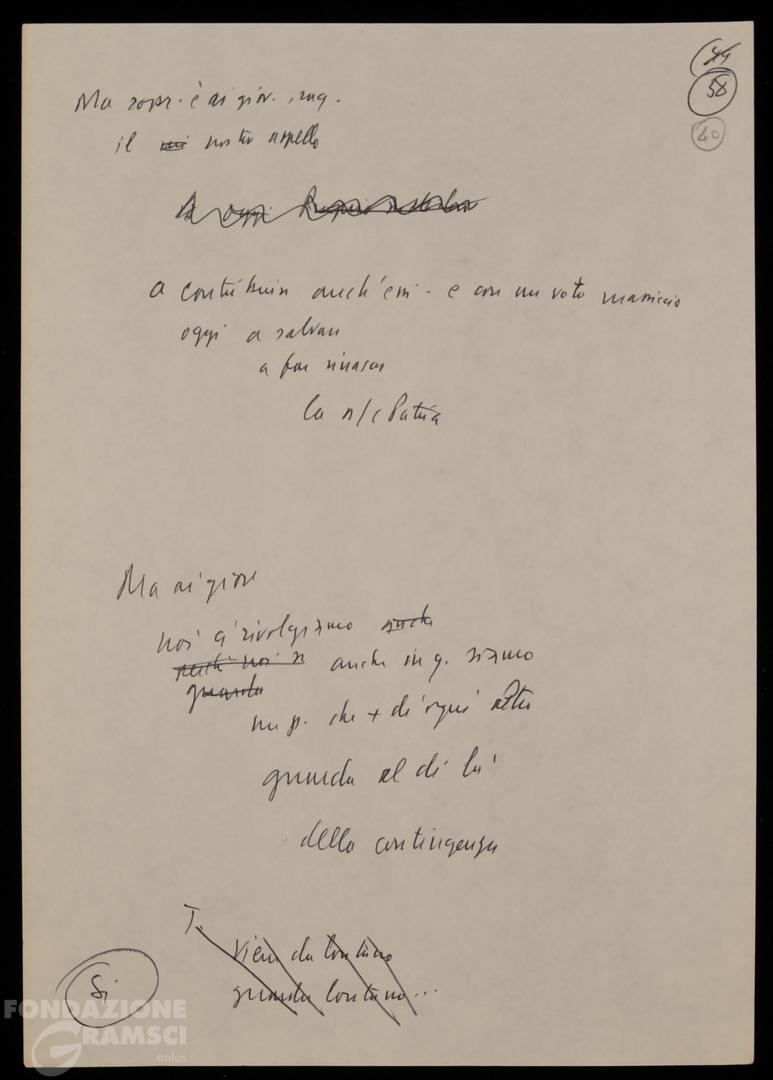 44
58
40
Ma sopr. è ai giov. , rag.
il mi nostro appello
A oggi
a contribuire anch'essi - e con un voto massiccio
oggi a salvare
a far rinascere
la n/c Patria
Ma ai giov
noi ci rivolgiamo anche
perché noi si anche in q. siamo
guarda
un p. che + di ogni altro
guarda al di là
della contingenza
T.
Vien da lontano
guarda lontano...
Si
FONDAZIONE
GRAMSCI
onlus